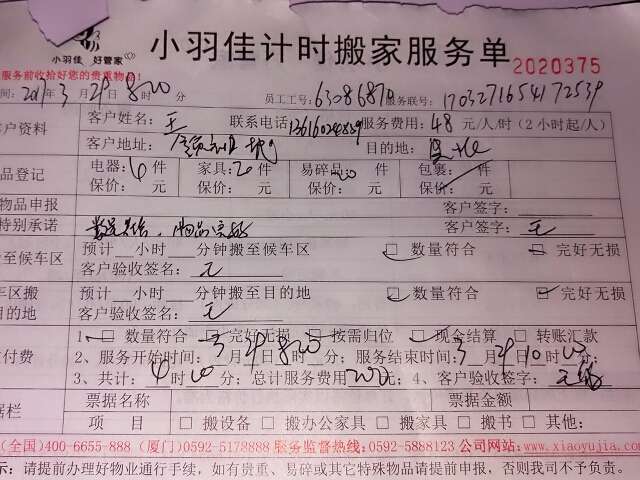 小羽佳 好管家
小羽佳计时搬家服务单
2020375
服务前收拾好您的贵重物品!
间: 2017年3月29日8时20分 员工工号: 63086870 服务联号: 1703271654172539
客户资料 客户姓名: 王 联系电话 服务费用: 48元/人/时(2小时起/人)
客户地址: 目的地:
品登记 电器: 件 家具: 件 易碎品: 件 包裹: 件
保价: 元 保价: 元 保价: 元 保价: 元
物品申报 客户签字:
特别承诺 客户签字: 王
至候车区 预计__小时__分钟搬至候车区 □数量符合 □完好无损
客户验收签名:
车区搬 预计__小时__分钟搬至目的地 □数量符合 □完好无损
目的地 客户验收签名:
付费 1、□数量符合 □完好无损 □按需归位 □现金结算 □转账汇款
2、服务开始时间: 3月29日8时20分; 服务结束时间: 3月29日10时 分;
3、共计: 时 分; 总计服务费用 元; 4、客户验收签字:
据栏 票据名称 票据金额
项 目 □搬设备 □搬办公家具 □搬家具 □搬书 □其他:
(全国)400-6655-888 (厦门)0592-5178888 服务监督热线:0592-5888123 公司网站:www.xiaoyujia.com
示: 请提前办理好物业通行手续, 如有贵重、易碎或其它特殊物品请提前申报, 否则我司不予负责。